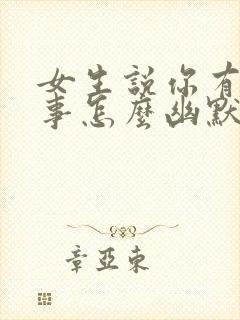 女生說你有
事怎麼幽默
章亞東